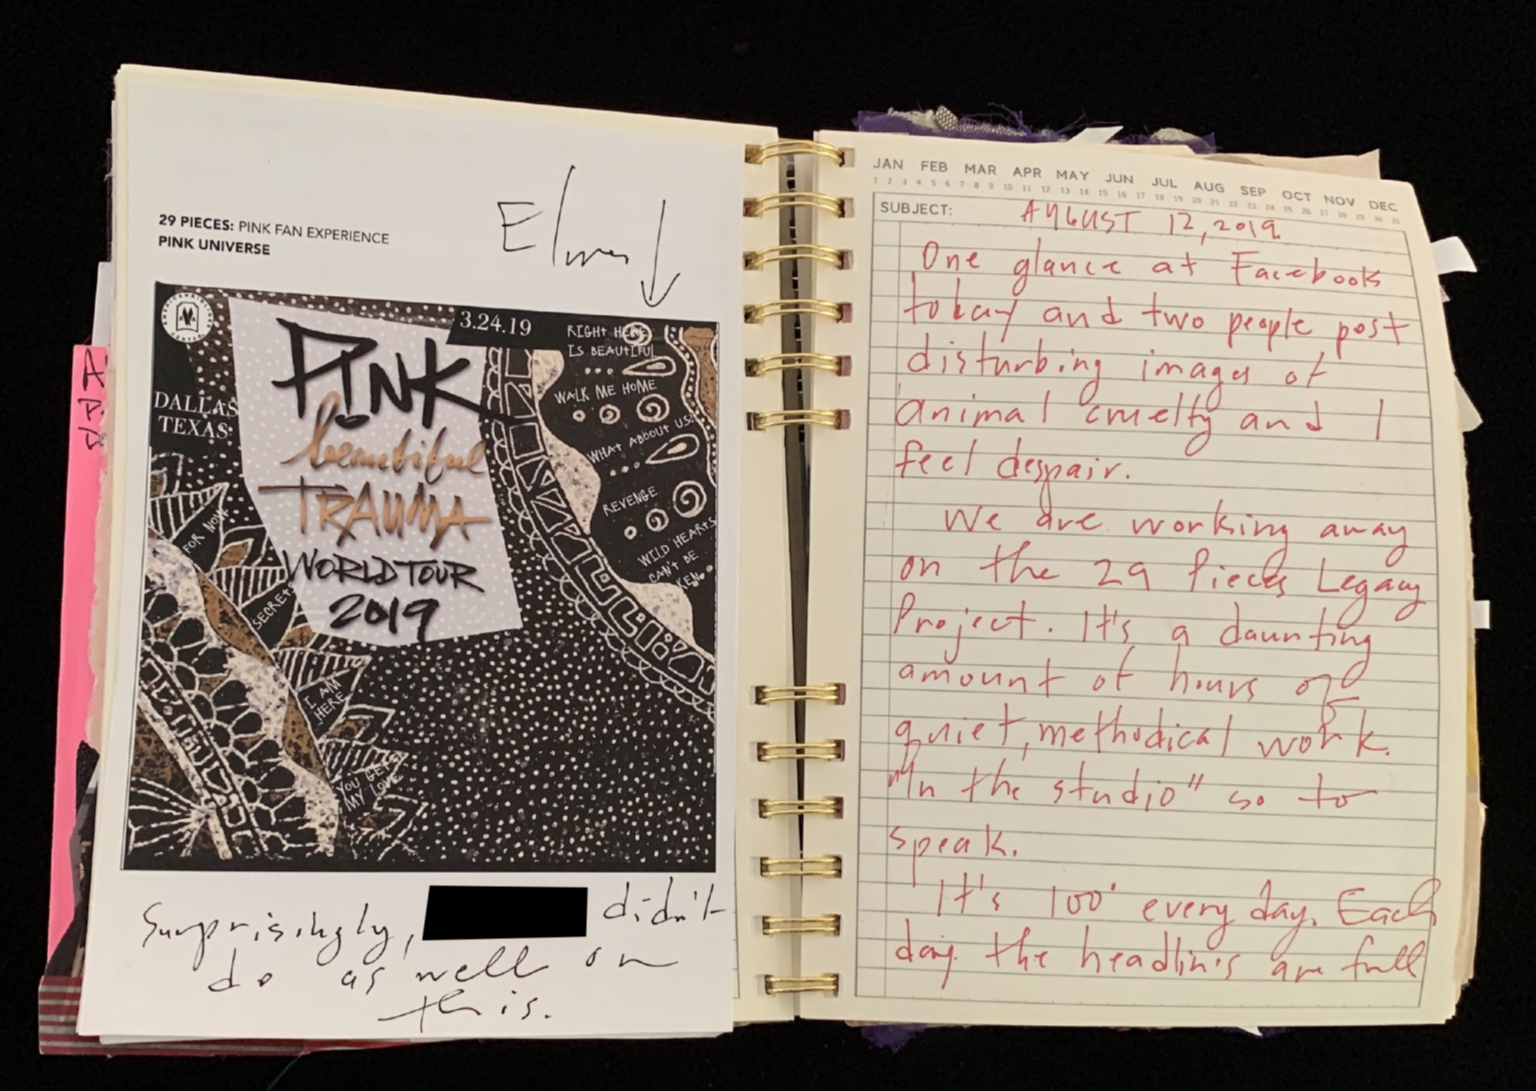 29 PIECES: PINK FAN EXPERIENCE
PINK UNIVERSE
3.24.19
DALLAS
TEXAS
P!NK
beautiful
TRAUMA
WORLD TOUR
2019
RIGHT HERE
IS BEAUTIFUL
WALK ME HOME
WHAT ABOUT US
REVENGE
WILD HEARTS
CAN'T BE
FOR NOW
SECRETS
I AM
HERE
YOU GETS
MY LOVE
Surprisingly, didn't
do as well on
this.
JAN FEB MAR APR MAY JUN JUL AUG SEP OCT NOV DEC
1 2 3 4 5 6 7 8 9 10 11 12 13 14 15 16 17 18 19 20 21 22 23 24 25 26 27 28 29 30 31
SUBJECT: AUGUST 12, 2019
One glance at Facebook
today and two people post
disturbing images of
animal cruelty and I
feel despair.
We are working away
on the 29 Pieces Legacy
Project. It's a daunting
amount of hours of
quiet, methodical work.
"In the studio" so to
speak.
It's 100° every day. Each
day the headlines are full